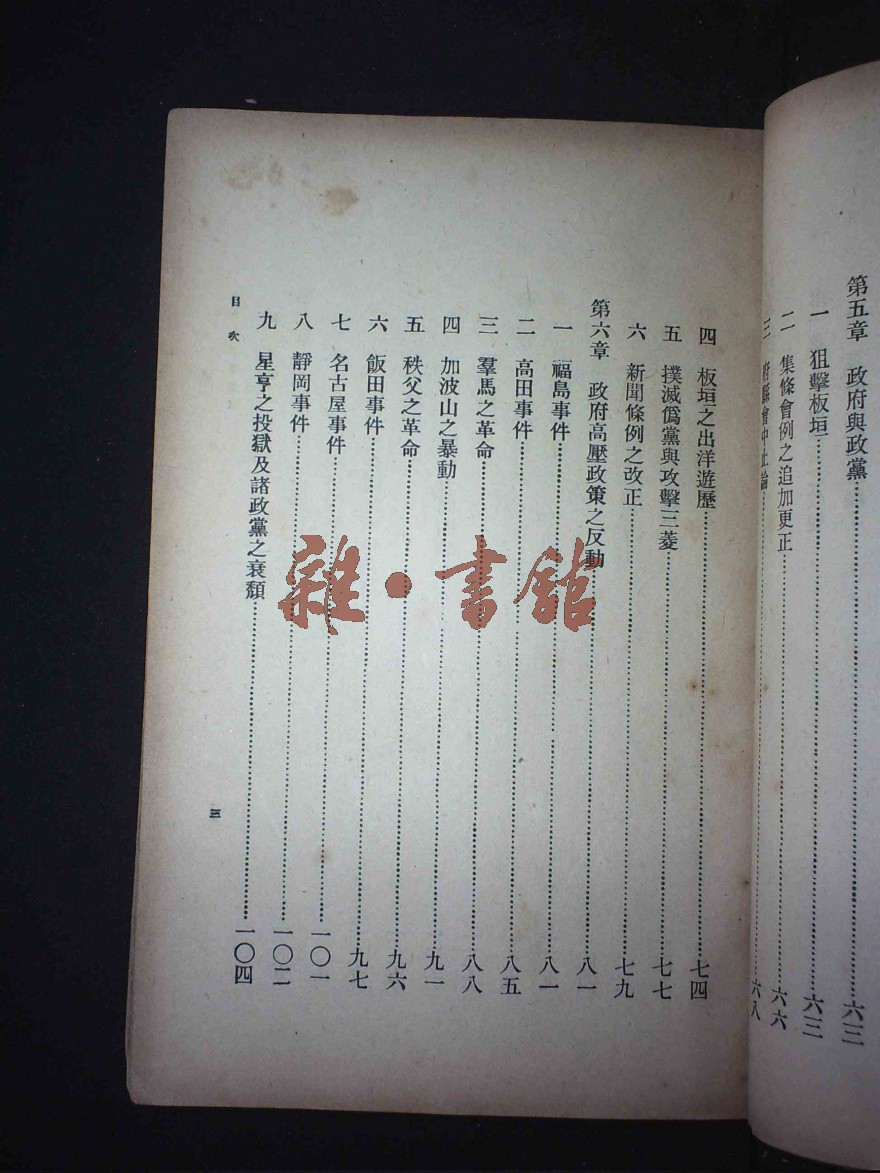 第五章　政府與政黨…………六三
一　狙擊板垣…………六三
二　集條會例之追加更正…………六六
三　府縣會中止論…………六八
四　板垣之出洋遊歷…………七四
五　撲滅僞黨與攻擊三菱…………七七
六　新聞條例之改正…………七九
第六章　政府高壓政策之反動…………八一
一　福島事件…………八一
二　高田事件…………八五
三　羣馬之革命…………八八
四　加波山之暴動…………九一
五　秩父之革命…………九六
六　飯田事件…………九七
七　名古屋事件…………一〇一
八　靜岡事件…………一〇二
九　星亨之投獄及諸政黨之衰頹…………一〇四
目次
三
雜·書館